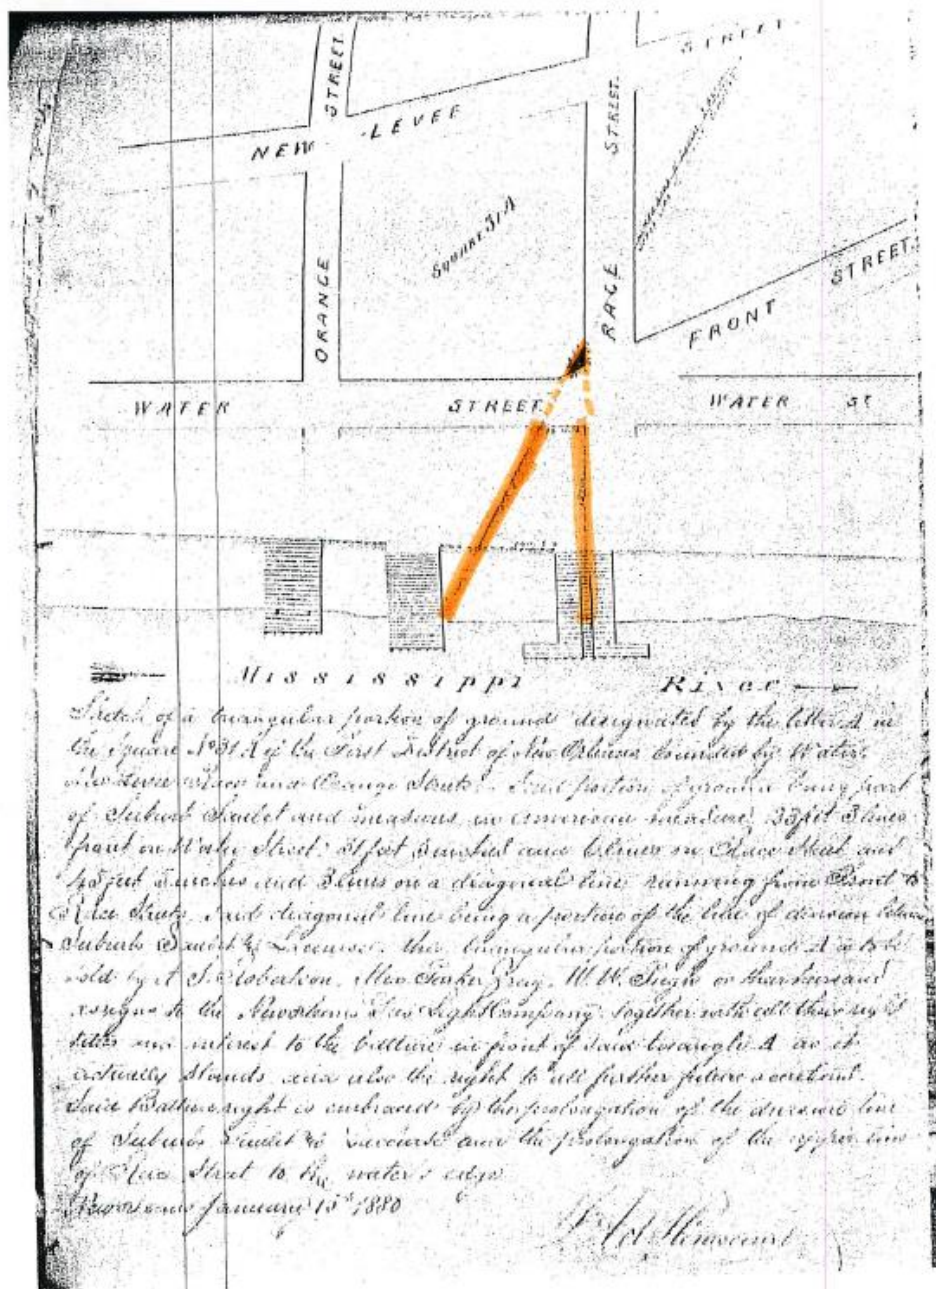 STREET.
STREET
NEW LEVEE
STREET.
Square 31 A
ORANGE
RACE
FRONT STREET.
WATER STREET.
WATER ST
Mississippi River
Sketch of a triangular portion of ground designated by the letter A in
the Square No 31 A of the First District of New Orleans bounded by Water
and Orange Streets. Said portion of ground being part
of Suburb Saulet and measures in American measure 33 feet 3 lines
front on Water Street. feet inches and 6 lines on Race Street and
feet inches and 3 lines on a diagonal line running from Front to
Race Streets. Said diagonal line being a portion of the line of division between
Suburbs Saulet & the triangular portion of ground A is to be
sold by A or their heirs and
assigns to the New Orleans Gas Light Company together with all their right
titles and interest to the batture in front of said triangle A as it
actually stands and also the right to all further future accretions.
Said Batture right is embraced by the prolongation of the division line
of Suburbs Saulet & and the prolongation of the upper line
of Race Street to the water's edge
New Orleans January 15th 1880